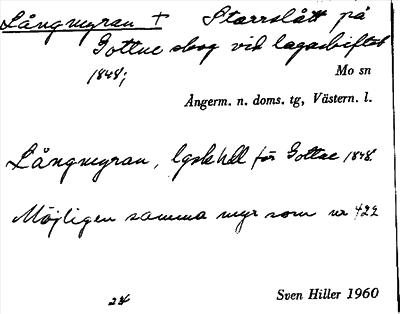 Långmyran + Starrslått på
Gottne skog vid lagaskiftet
1848;
Mo sn
Ångerm. n. doms. tg, Västern. l.
Långmyran, lgsk hdl för Gottne 1848.
Möjligen samma myr som nr 422
24 Sven Hiller 1960